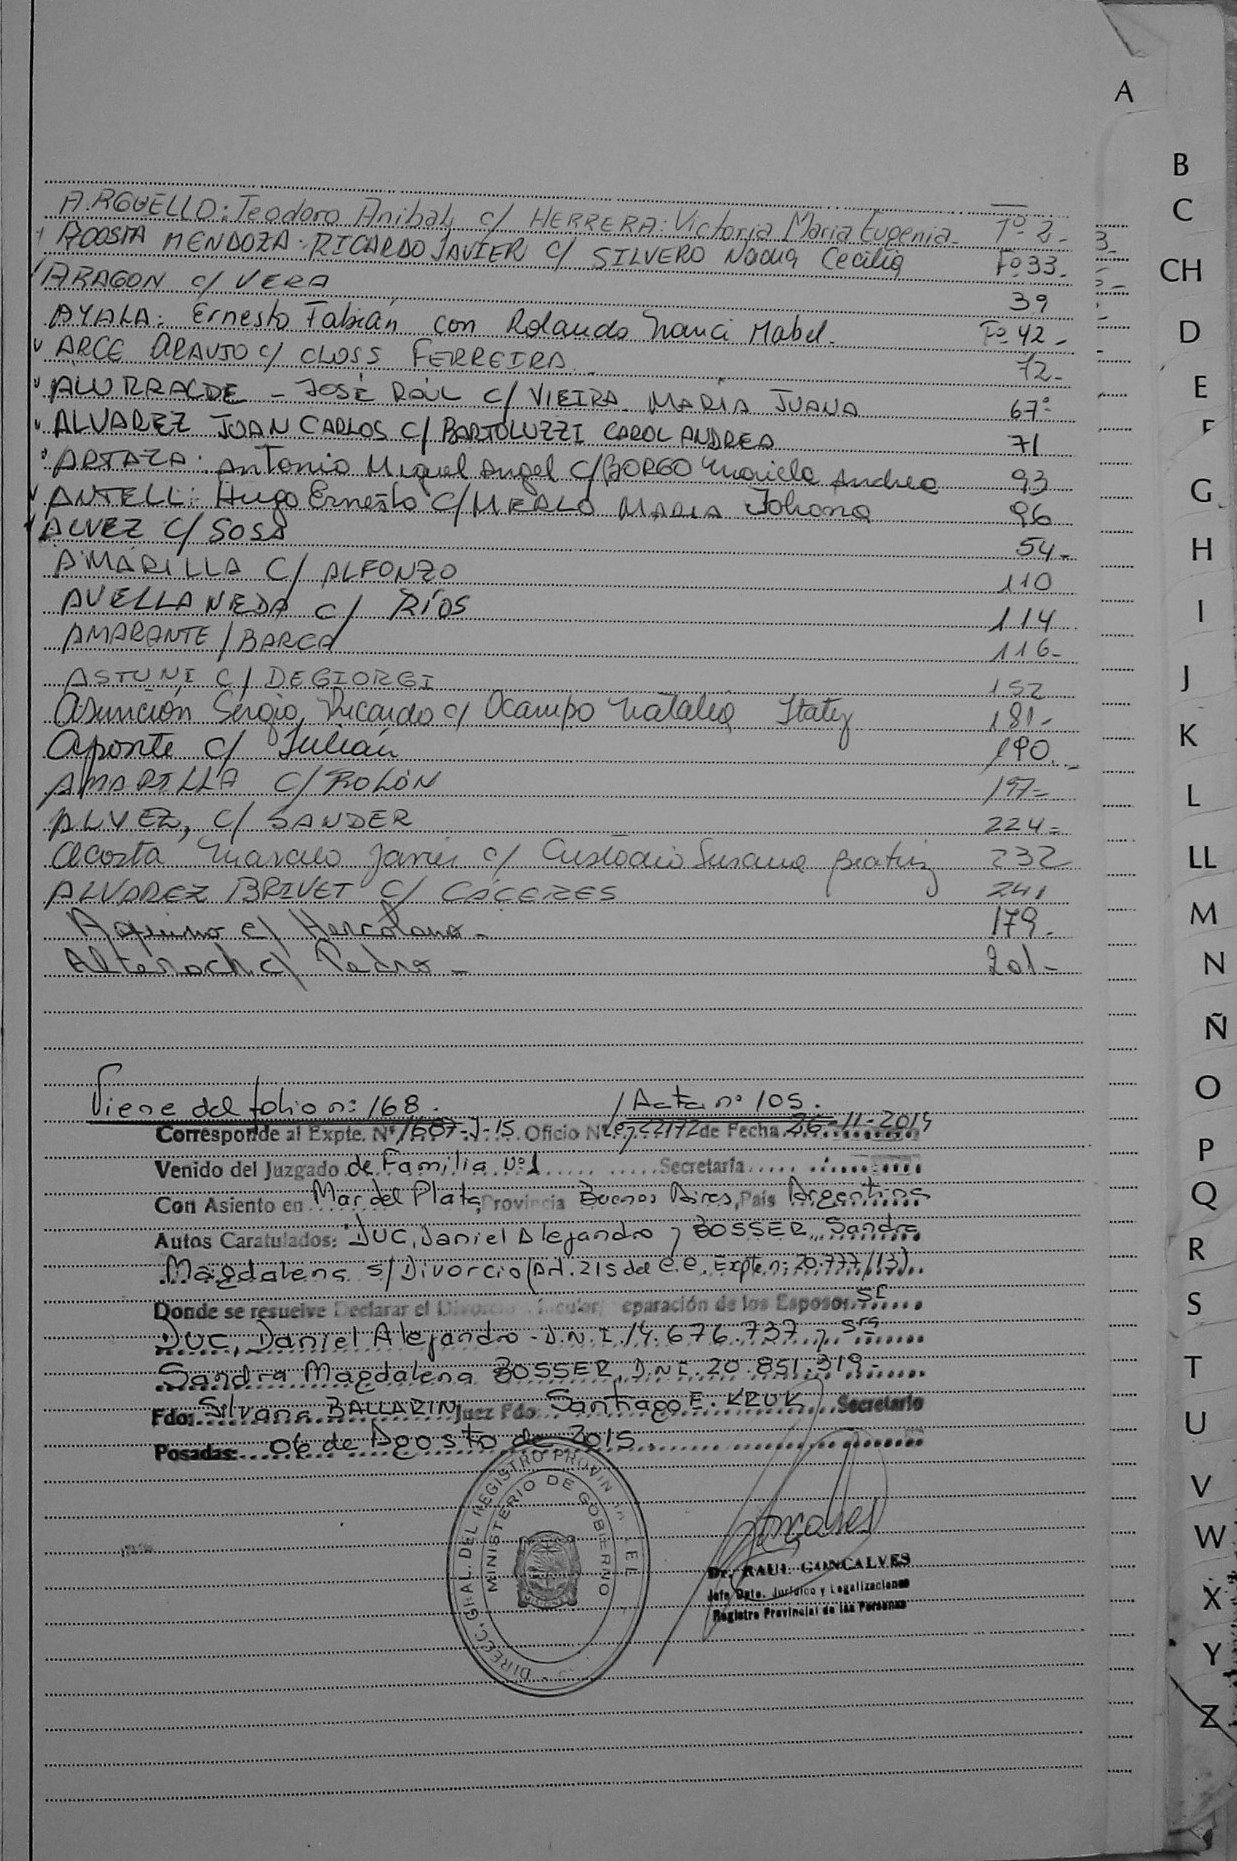 A
B
C
CH
D
E
F
G
H
I
J
K
L
LL
M
N
Ñ
O
P
Q
R
S
T
U
V
W
X
Y
Z
ARGUELLO: Teodoro Anibal, c/ HERRERA: Victoria Maria Eugenia - Fº 2 -
ACOSTA MENDOZA - RICARDO JAVIER c/ SILVERO Nadia Cecilia Fº 33 -
ARAGON c/ VERA 39
AYALA: Ernesto Fabián con Rolando Nanci Mabel - Fº 42 -
ARCE ARAUJO c/ CLOSS FERREIRA 72 -
ALURRALDE - JOSÉ RAÚL C/ VIEIRA MARÍA JUANA 67
ALVAREZ JUAN CARLOS C/ BARTOLUZZI CAROL ANDREA 71
ARTAZA: Antonio Miguel Angel C/ BORGO Mariela Andrea 93
ANTELL: Hugo Ernesto C/ MERLO MARIA Johana 96
ALVEZ C/ SOSA 54 -
AMARILLA C/ ALFONZO 110
AVELLANEDA C/ RÍOS 114
AMARANTE / BARCA 116 -
ASTUNI C/ DEGIORGI 152
Asunción Sergio Ricardo c/ Ocampo Natalia Itatí 181 -
Aponte c/ Julián 190
AMARILLA C/ ROLÓN 197 -
ALVEZ, C/ SANDER 224 -
Acosta Marcelo Javier c/ Custodio Susana Beatriz 232
ALVAREZ BRIVET C/ CÁCERES 241
Aquino c/ Hercolano - 179 -
Altenoch c/ Pedro - 201 -
Viene del folio nº 168. / Acta nº 105.
Corresponde al Expte. Nº 1687-J-15 Oficio Nº de Fecha 26-11-2014
Venido del Juzgado de Familia Nº 1 Secretaria
Con Asiento en Mar del Plata, Provincia Buenos Aires, País Argentina
Autos Caratulados: DUC, Daniel Alejandro y BOSSER, Sandra
Magdalena s/ Divorcio (Art. 215 del C.C. Expte nº 20.777/13).
Donde se resuelve Declarar el Divorcio Vincular/ eparación de los Esposos Sr
DUC, Daniel Alejandro - D.N.I. 14.676.737 y Sra
Sandra Magdalena BOSSER, D.N.I. 20.851.319 -
Fdo: Silvana BALLARIN Juez Fdo Santiago E. KRUK Secretario
Posadas: 06 de Agosto de 2015.
DIREC. GRAL. DEL REGISTRO PROVIN
MINISTERIO DE GOBIERNO
Dr. RAUL GONCALVES
Jefe Dpto. Jurídico y Legalizaciones
Registro Provincial de las Personas